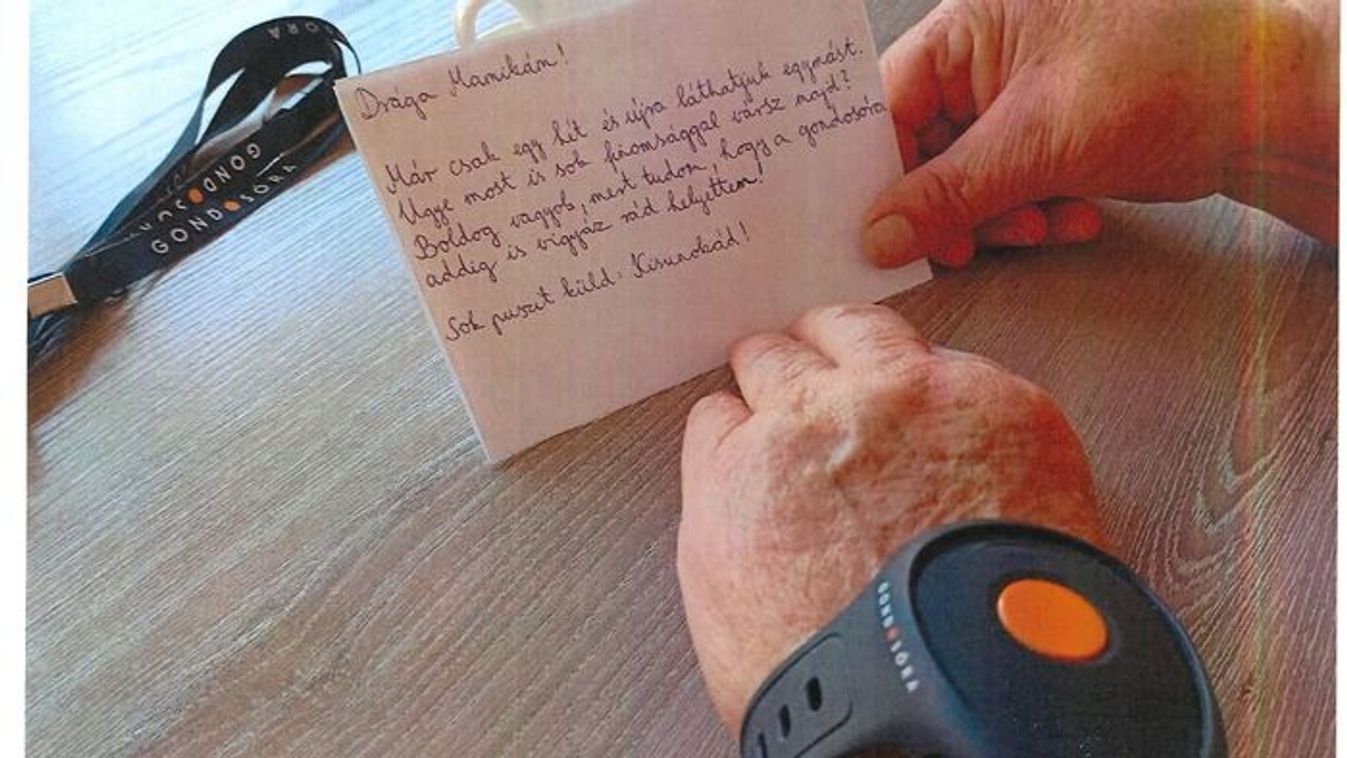 ÓRA
GONDOSÓRA
GONDOSÓRA
Drága Mamikám!
Már csak egy hét és újra láthatjuk egymást.
Ugye most is sok finomsággal vársz majd?
Boldog vagyok, mert tudom, hogy a gondosóra
addig is vigyáz rád helyettem!
Sok puszit küld: Kisunokád!
GONDOSÓRA